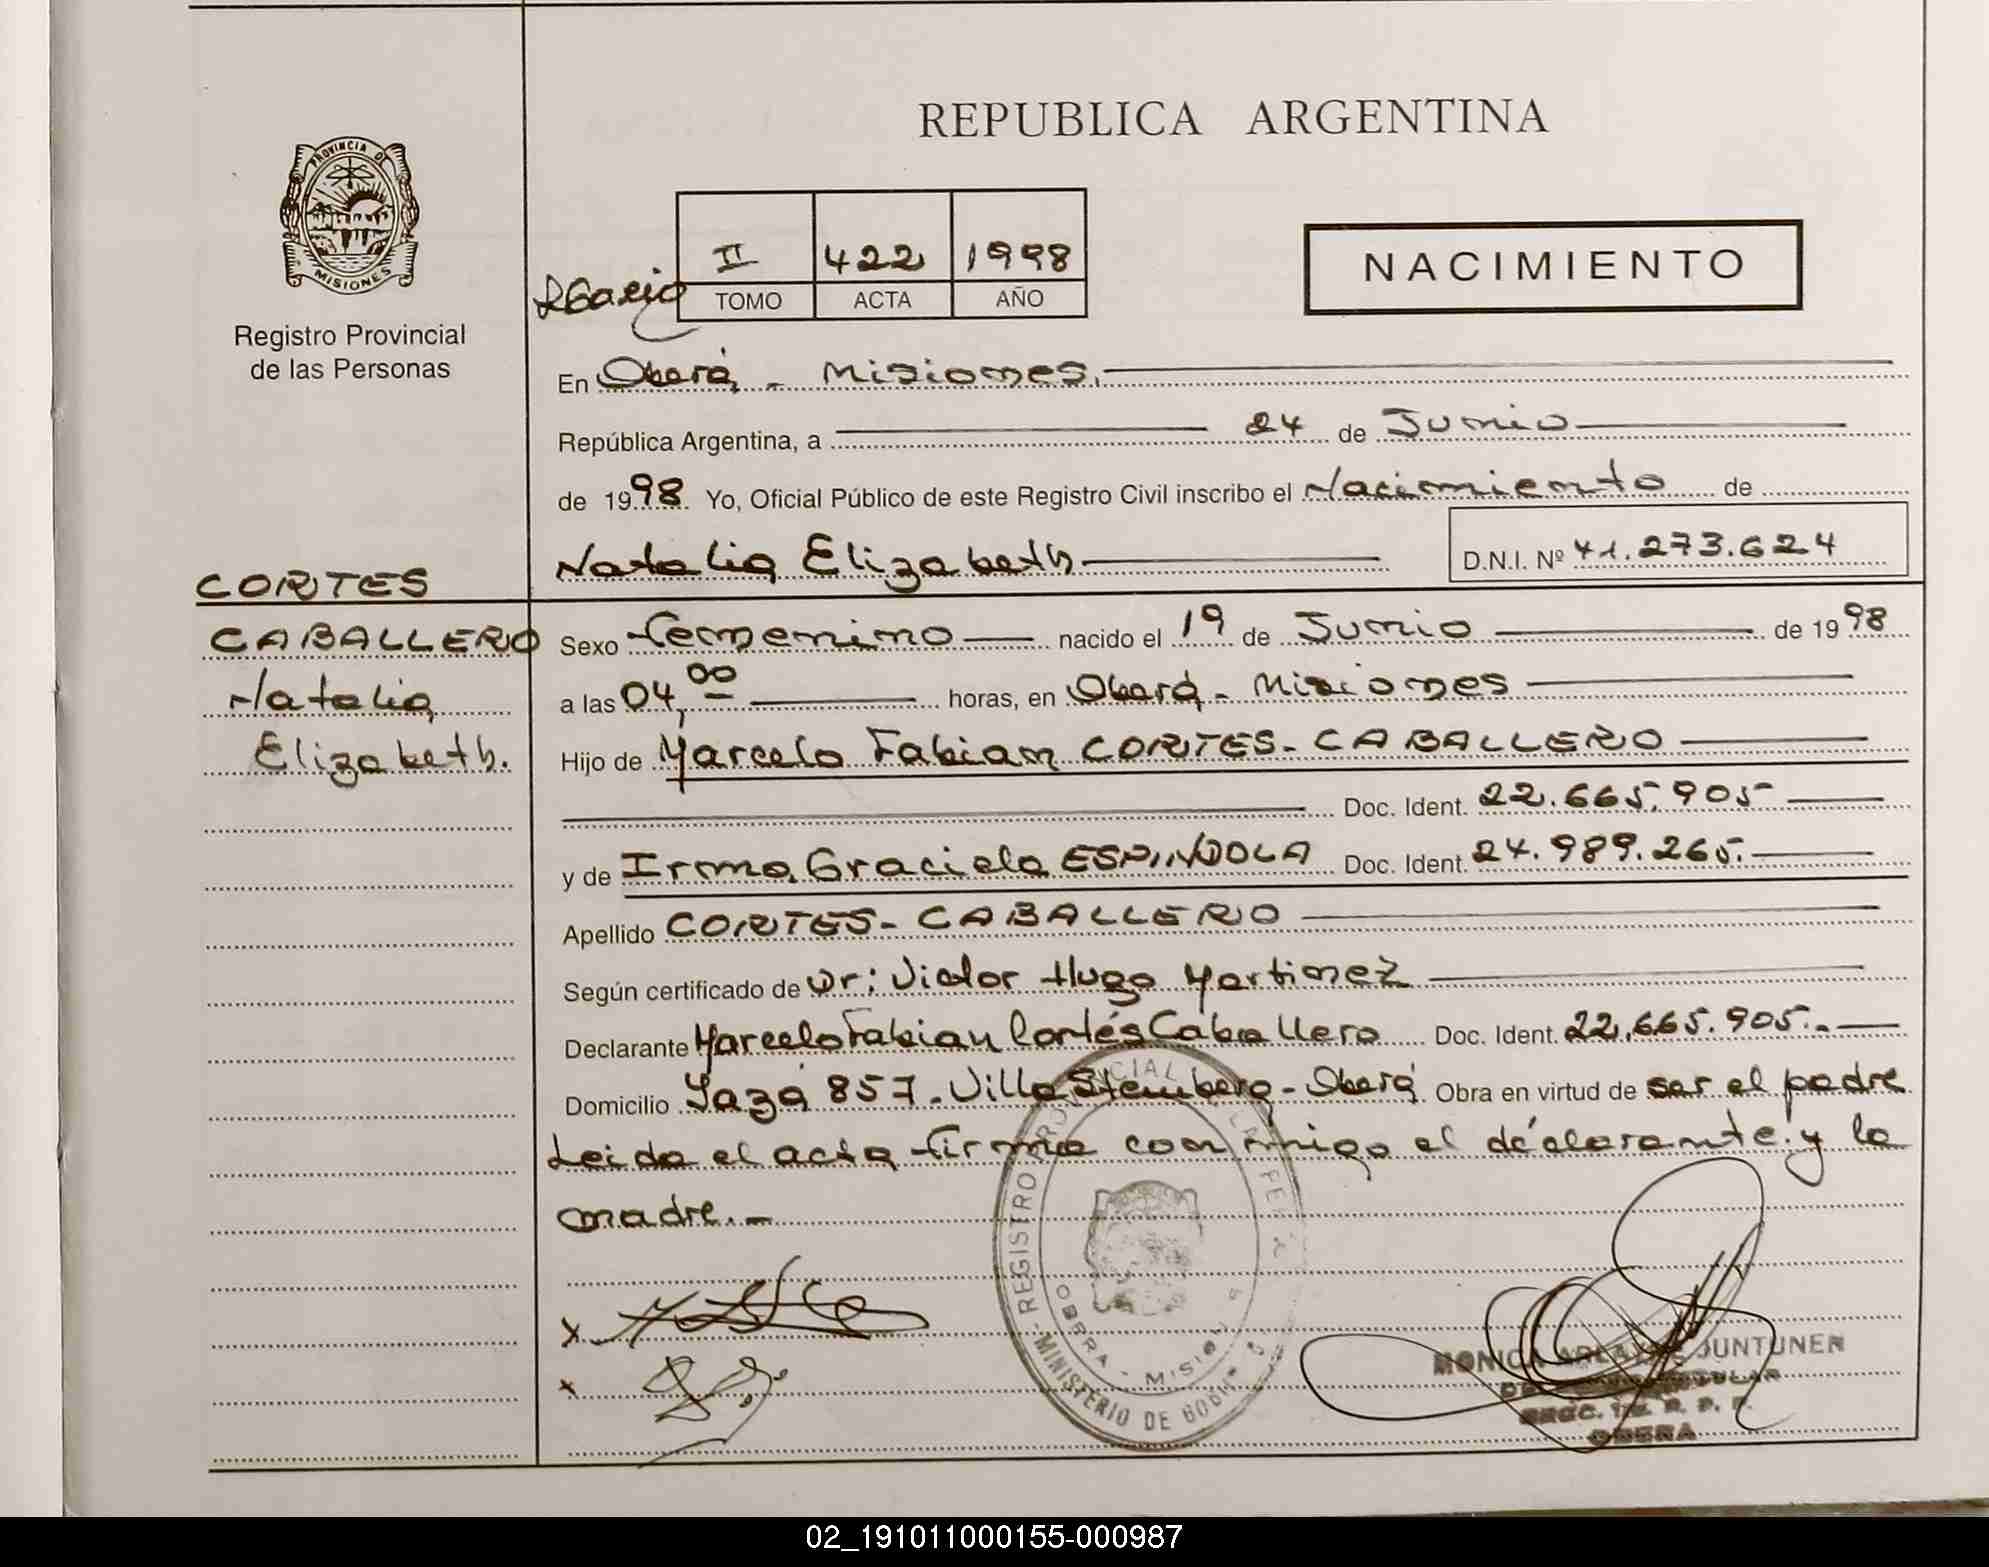 REPUBLICA ARGENTINA
PROVINCIA DE
MISIONES
Registro Provincial
de las Personas
II 422 1998
TOMO ACTA AÑO
NACIMIENTO
En Oberá - Misiones.
República Argentina, a 24 de Junio
de 1998. Yo, Oficial Público de este Registro Civil inscribo el Nacimiento de
Natalia Elizabeth D.N.I. Nº 41.273.624
CORTES
CABALLERO
Natalia
Elizabeth.
Sexo femenino nacido el 19 de Junio de 1998
a las 04,00 horas, en Oberá - Misiones
Hijo de Marcelo Fabian CORTES - CABALLERO
Doc. Ident. 22.665.905
y de Irma Graciela ESPINDOLA Doc. Ident. 24.989.265.
Apellido CORTES - CABALLERO
Según certificado de Dr: Victor Hugo Martinez
Declarante Marcelo Fabian Cortés Caballero Doc. Ident. 22.665.905.-
Domicilio Yazá 857 - Villa Stemberg - Oberá Obra en virtud de ser el padre
Leida el acta firma conmigo el declarante y la
madre. -
x
x
REGISTRO
MINISTERIO DE
OBERA - MISIONES
MONICA JUNTUNEN
OBERA
02_191011000155-000987